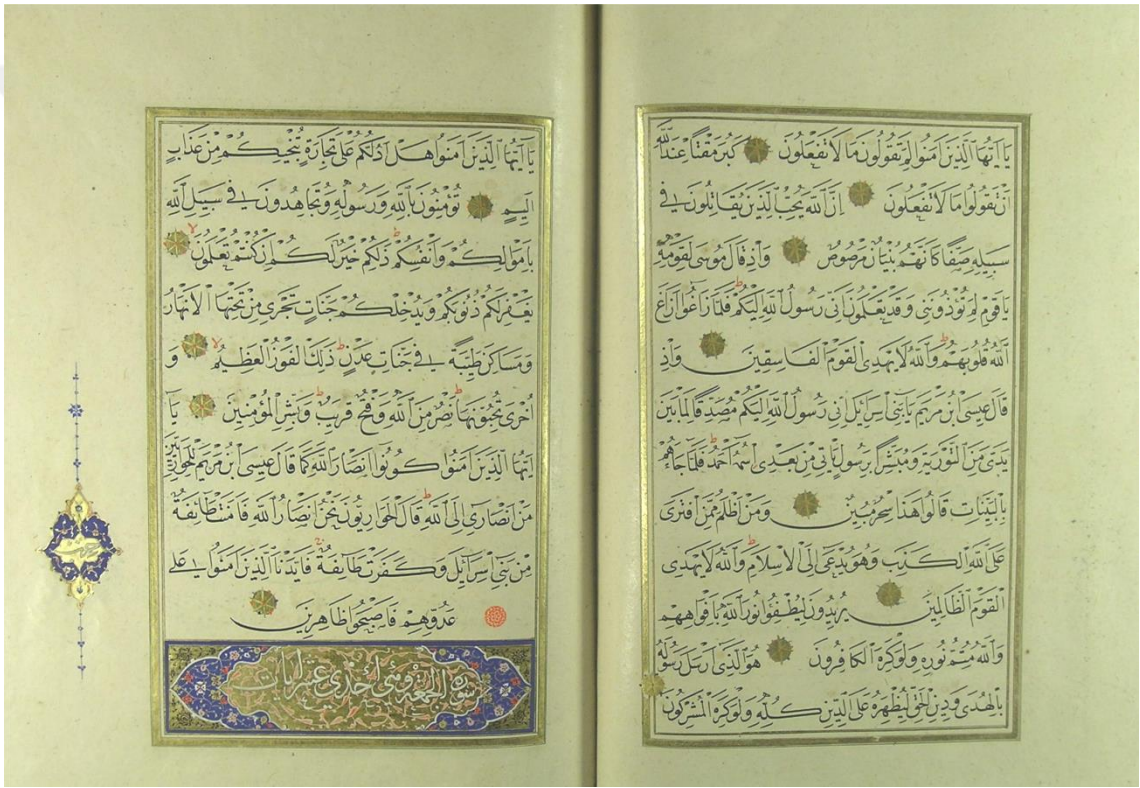 يَا اَيُّهَا الَّذِينَ اٰمَنُوا لِمَ تَقُولُونَ مَا لَا تَفْعَلُونَ كَبُرَ مَقْتًا عِنْدَ اللّٰهِ
اَنْ تَقُولُوا مَا لَا تَفْعَلُونَ اِنَّ اللّٰهَ يُحِبُّ الَّذِينَ يُقَاتِلُونَ فِي
سَبِيلِهِ صَفًّا كَاَنَّهُمْ بُنْيَانٌ مَرْصُوصٌ وَاِذْ قَالَ مُوسَى لِقَوْمِهِ
يَا قَوْمِ لِمَ تُؤْذُونَنِي وَقَدْ تَعْلَمُونَ اَنِّي رَسُولُ اللّٰهِ اِلَيْكُمْ فَلَمَّا زَاغُوا اَزَاغَ
اللّٰهُ قُلُوبَهُمْ وَاللّٰهُ لَا يَهْدِي الْقَوْمَ الْفَاسِقِينَ وَاِذْ
قَالَ عِيسَى ابْنُ مَرْيَمَ يَا بَنِي اِسْرَائِيلَ اِنِّي رَسُولُ اللّٰهِ اِلَيْكُمْ مُصَدِّقًا لِمَا بَيْنَ
يَدَيَّ مِنَ التَّوْرٰيةِ وَمُبَشِّرًا بِرَسُولٍ يَاْتِي مِنْ بَعْدِي اسْمُهُ اَحْمَدُ فَلَمَّا جَاءَهُمْ
بِالْبَيِّنَاتِ قَالُوا هَذَا سِحْرٌ مُبِينٌ وَمَنْ اَظْلَمُ مِمَّنِ افْتَرَى
عَلَى اللّٰهِ الْكَذِبَ وَهُوَ يُدْعَى اِلَى الْاِسْلَامِ وَاللّٰهُ لَا يَهْدِي
الْقَوْمَ الظَّالِمِينَ يُرِيدُونَ لِيُطْفِئُوا نُورَ اللّٰهِ بِاَفْوَاهِهِمْ
وَاللّٰهُ مُتِمُّ نُورِهِ وَلَوْ كَرِهَ الْكَافِرُونَ هُوَ الَّذِي اَرْسَلَ رَسُولَهُ
بِالْهُدَى وَدِينِ الْحَقِّ لِيُظْهِرَهُ عَلَى الدِّينِ كُلِّهِ وَلَوْ كَرِهَ الْمُشْرِكُونَ
يَا اَيُّهَا الَّذِينَ اٰمَنُوا هَلْ اَدُلُّكُمْ عَلَى تِجَارَةٍ تُنْجِيكُمْ مِنْ عَذَابٍ
اَلِيمٍ تُؤْمِنُونَ بِاللّٰهِ وَرَسُولِهِ وَتُجَاهِدُونَ فِي سَبِيلِ اللّٰهِ
بِاَمْوَالِكُمْ وَاَنْفُسِكُمْ ذَلِكُمْ خَيْرٌ لَكُمْ اِنْ كُنْتُمْ تَعْلَمُونَ
يَغْفِرْ لَكُمْ ذُنُوبَكُمْ وَيُدْخِلْكُمْ جَنَّاتٍ تَجْرِي مِنْ تَحْتِهَا الْاَنْهَارُ
وَمَسَاكِنَ طَيِّبَةً فِي جَنَّاتِ عَدْنٍ ذَلِكَ الْفَوْزُ الْعَظِيمُ وَ
اُخْرَى تُحِبُّونَهَا نَصْرٌ مِنَ اللّٰهِ وَفَتْحٌ قَرِيبٌ وَبَشِّرِ الْمُؤْمِنِينَ يَا
اَيُّهَا الَّذِينَ اٰمَنُوا كُونُوا اَنْصَارَ اللّٰهِ كَمَا قَالَ عِيسَى ابْنُ مَرْيَمَ لِلْحَوَارِيِّينَ
مَنْ اَنْصَارِي اِلَى اللّٰهِ قَالَ الْحَوَارِيُّونَ نَحْنُ اَنْصَارُ اللّٰهِ فَاٰمَنَتْ طَائِفَةٌ
مِنْ بَنِي اِسْرَائِيلَ وَكَفَرَتْ طَائِفَةٌ فَاَيَّدْنَا الَّذِينَ اٰمَنُوا عَلَى
عَدُوِّهِمْ فَاَصْبَحُوا ظَاهِرِينَ
سورة الجمعة وهي احدى عشر ايات